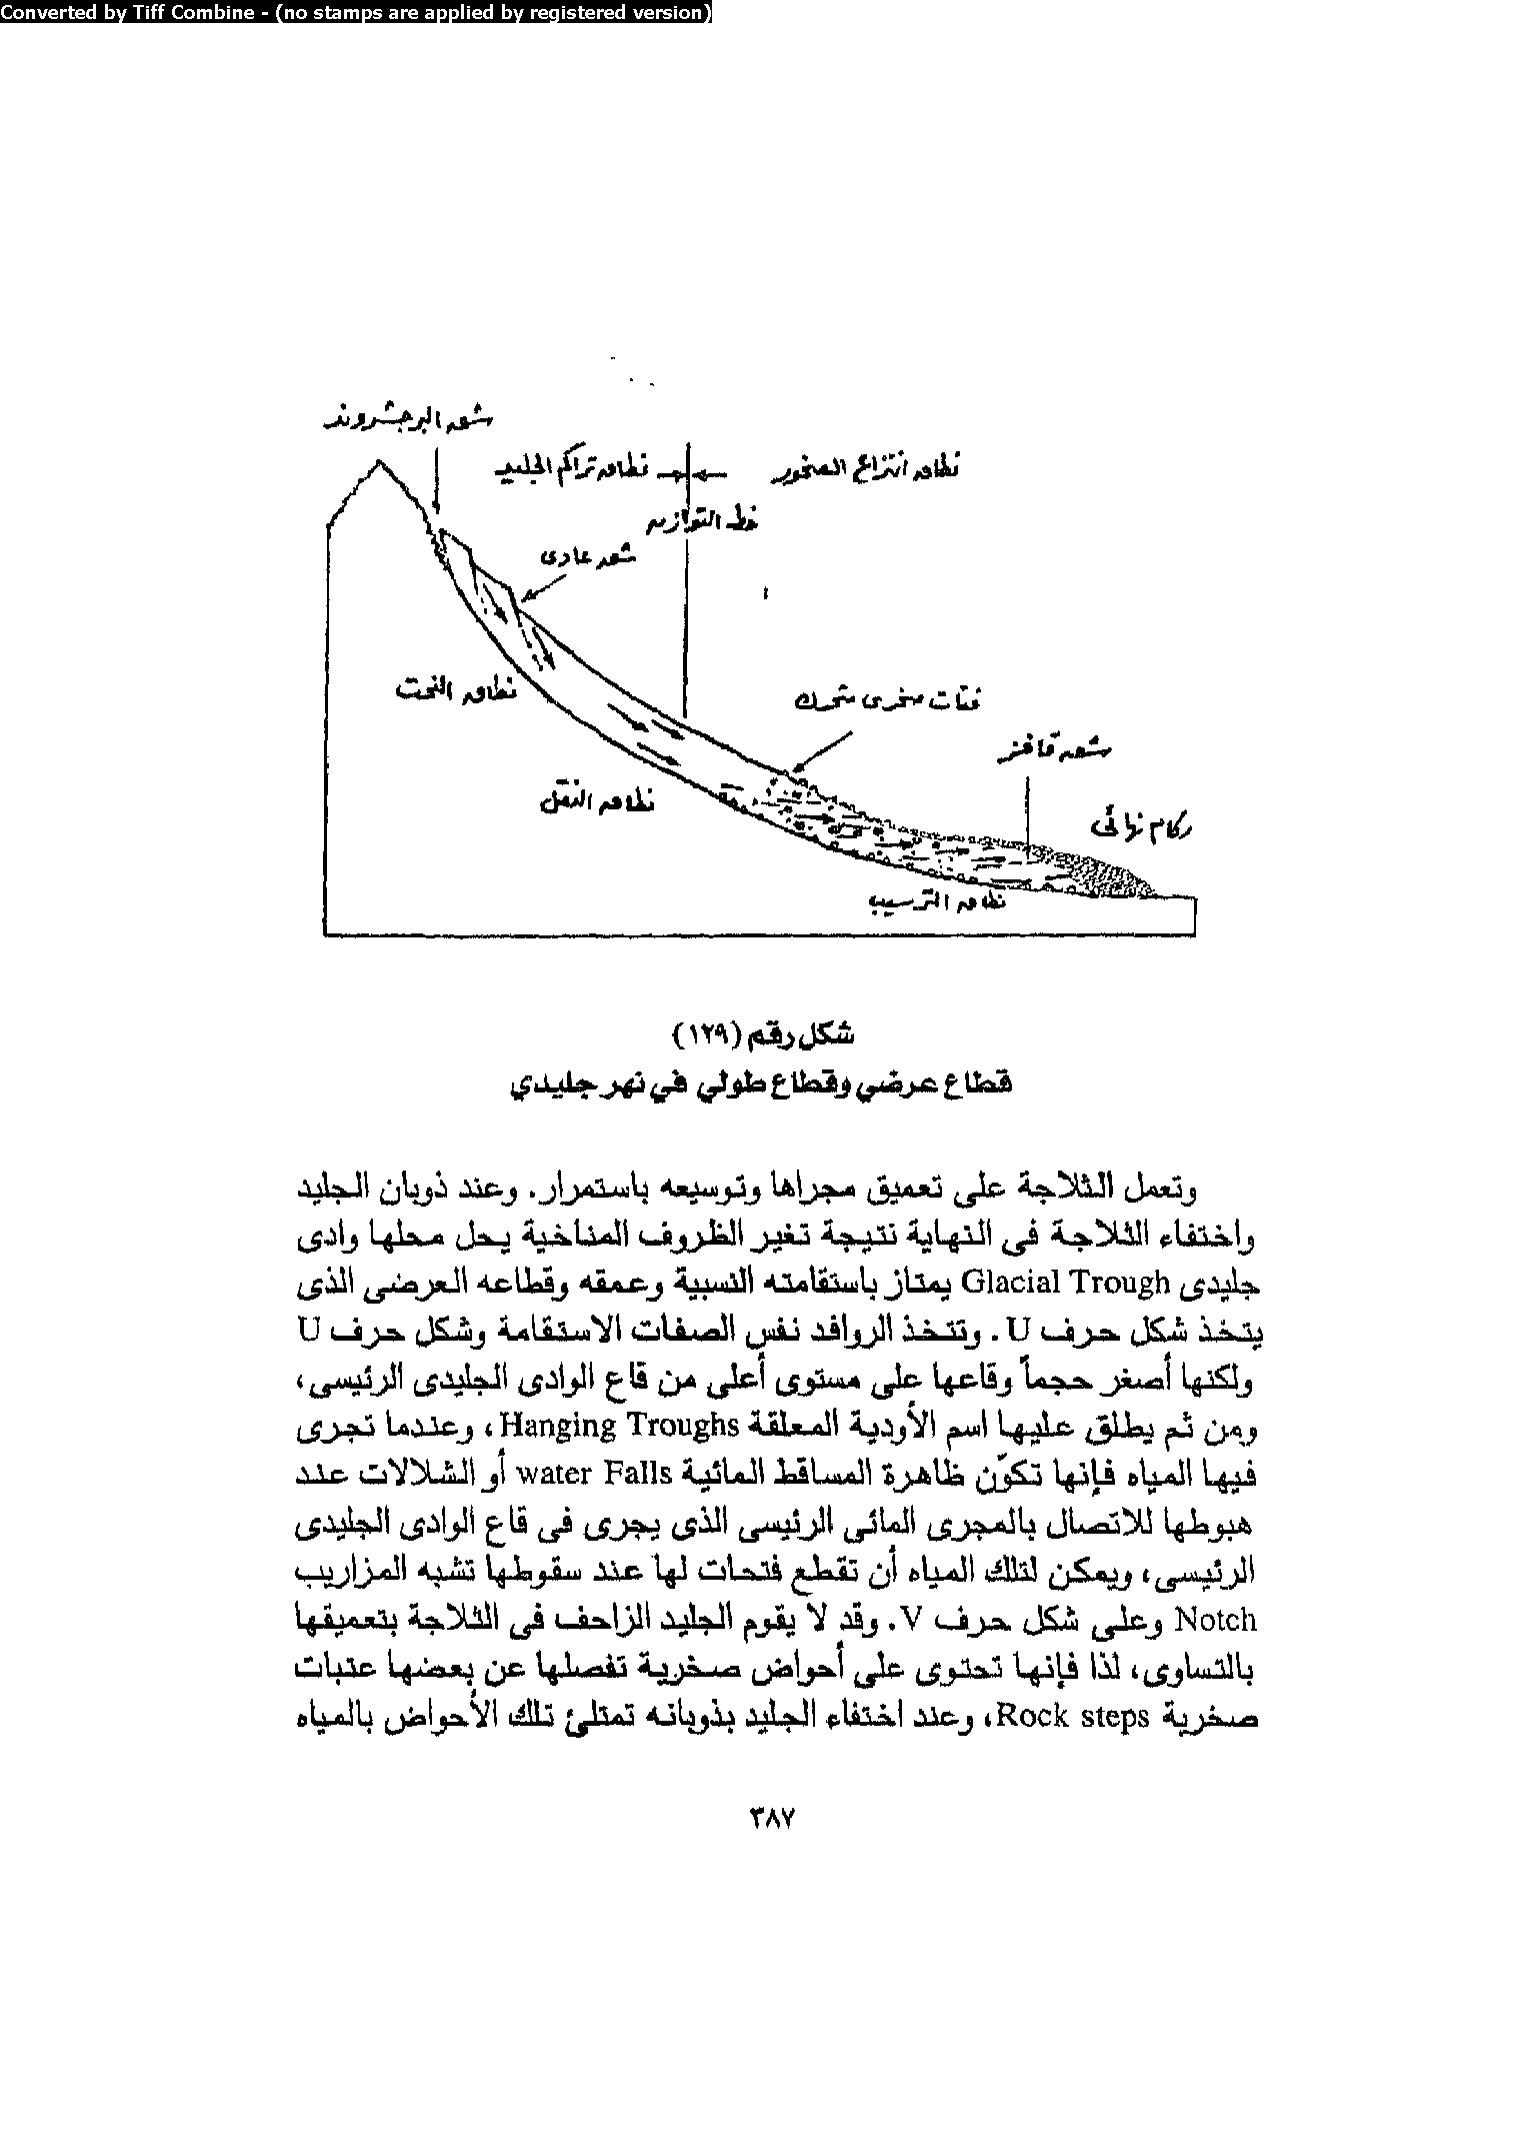 Converted by Tiff Combine - (no stamps are applied by registered version)
شق البرجشروند
نطاق انتزاع الصخور
نطاق تراكم الجليد
خط التوازن
شق عادى
نطاق النحت
فتات صخرى متحرك
شق قافز
نطاق النقل
ركام نهائى
نطاق الترسيب
شكل رقم (١٢٩)
قطاع عرضي وقطاع طولي في نهر جليدي
وتعمل الثلاجة على تعميق مجراها وتوسيعه باستمرار. وعند ذوبان الجليد
واختفاء الثلاجة فى النهاية نتيجة تغير الظروف المناخية يحل محلها وادى
جليدى Glacial Trough يمتاز باستقامته النسبية وعمقه وقطاعه العرضى الذى
يتخذ شكل حرف U. وتتخذ الروافد نفس الصفات الاستقامة وشكل حرف U
ولكنها أصغر حجماً وقاعها على مستوى أعلى من قاع الوادى الجليدى الرئيسى،
ومن ثم يطلق عليها اسم الأودية المعلقة Hanging Troughs، وعندما تجرى
فيها المياه فإنها تكوّن ظاهرة المساقط المائية water Falls أو الشلالات عند
هبوطها للاتصال بالمجرى المائى الرئيسى الذى يجرى فى قاع الوادى الجليدى
الرئيسى، ويمكن لتلك المياه أن تقطع فتحات لها عند سقوطها تشبه المزاريب
Notch وعلى شكل حرف V. وقد لا يقوم الجليد الزاحف فى الثلاجة بتعميقها
بالتساوى، لذا فإنها تحتوى على أحواض صخرية تفصلها عن بعضها عتبات
صخرية Rock steps، وعند اختفاء الجليد بذوبانه تمتلئ تلك الأحواض بالمياه
٣٨٧